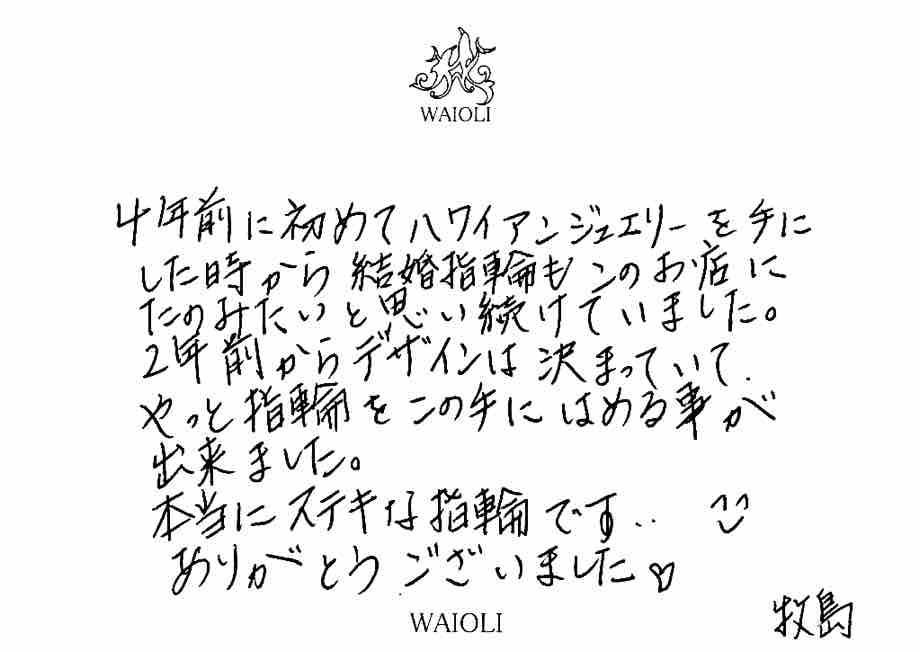 WAIOLI
4年前に初めてハワイアンジュエリーを手に
した時から結婚指輪もこのお店に
たのみたいと思い続けていました。
2年前からデザインは決まっていて
やっと指輪をこの手にはめる事が
出来ました。
本当にステキな指輪です..
ありがとうございました♡
WAIOLI
牧島